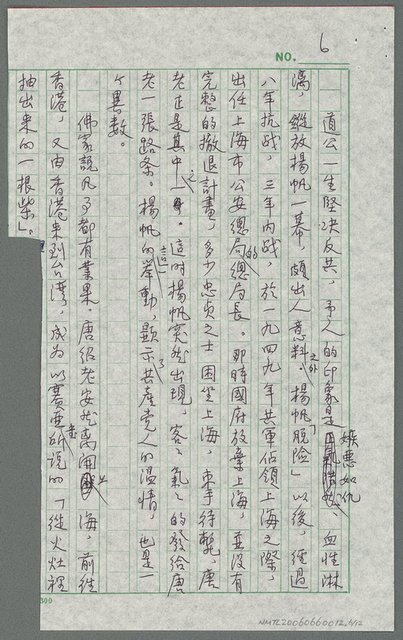 NO. 6
道公一生堅決反共,予人的印象是嫉惡如仇、血性淋
漓,縱放揚帆一幕,頗出人意料之外。揚帆「脫險」以後,經過
八年抗战,三年內战,於一九四九年共軍佔領上海之際,
出任上海市公安總局的總局長。那時國府放棄上海,並沒有
完整的撤退計畫,多少忠貞之士困坐上海,束手待斃,唐
老正是其中之一。這時揚帆突然出現,客客氣氣的發給唐
老一張路条。揚帆的這一舉動,顯示了共產党人的溫情,也是一
个異數。
佛家説凡事都有業果。唐紹老安然离開上海,前往
香港,又由香港來到台湾,成為以賽亞所説的「從火灶裡
抽出來的一根柴」。
300
NMTL20060660012,6/12